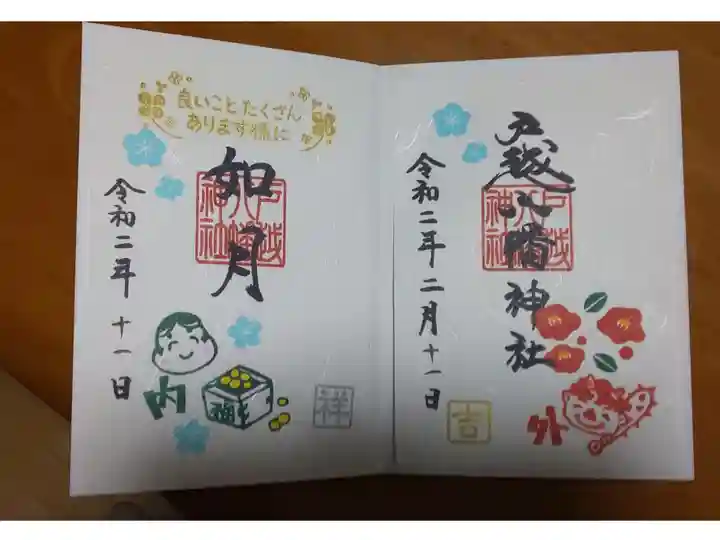 戸越八幡神社
戸越八幡神社
令和二年二月十一日
外
吉
良いことたくさん
ありますように
如月
戸越八幡神社
令和二年 十一日
内
福
祥